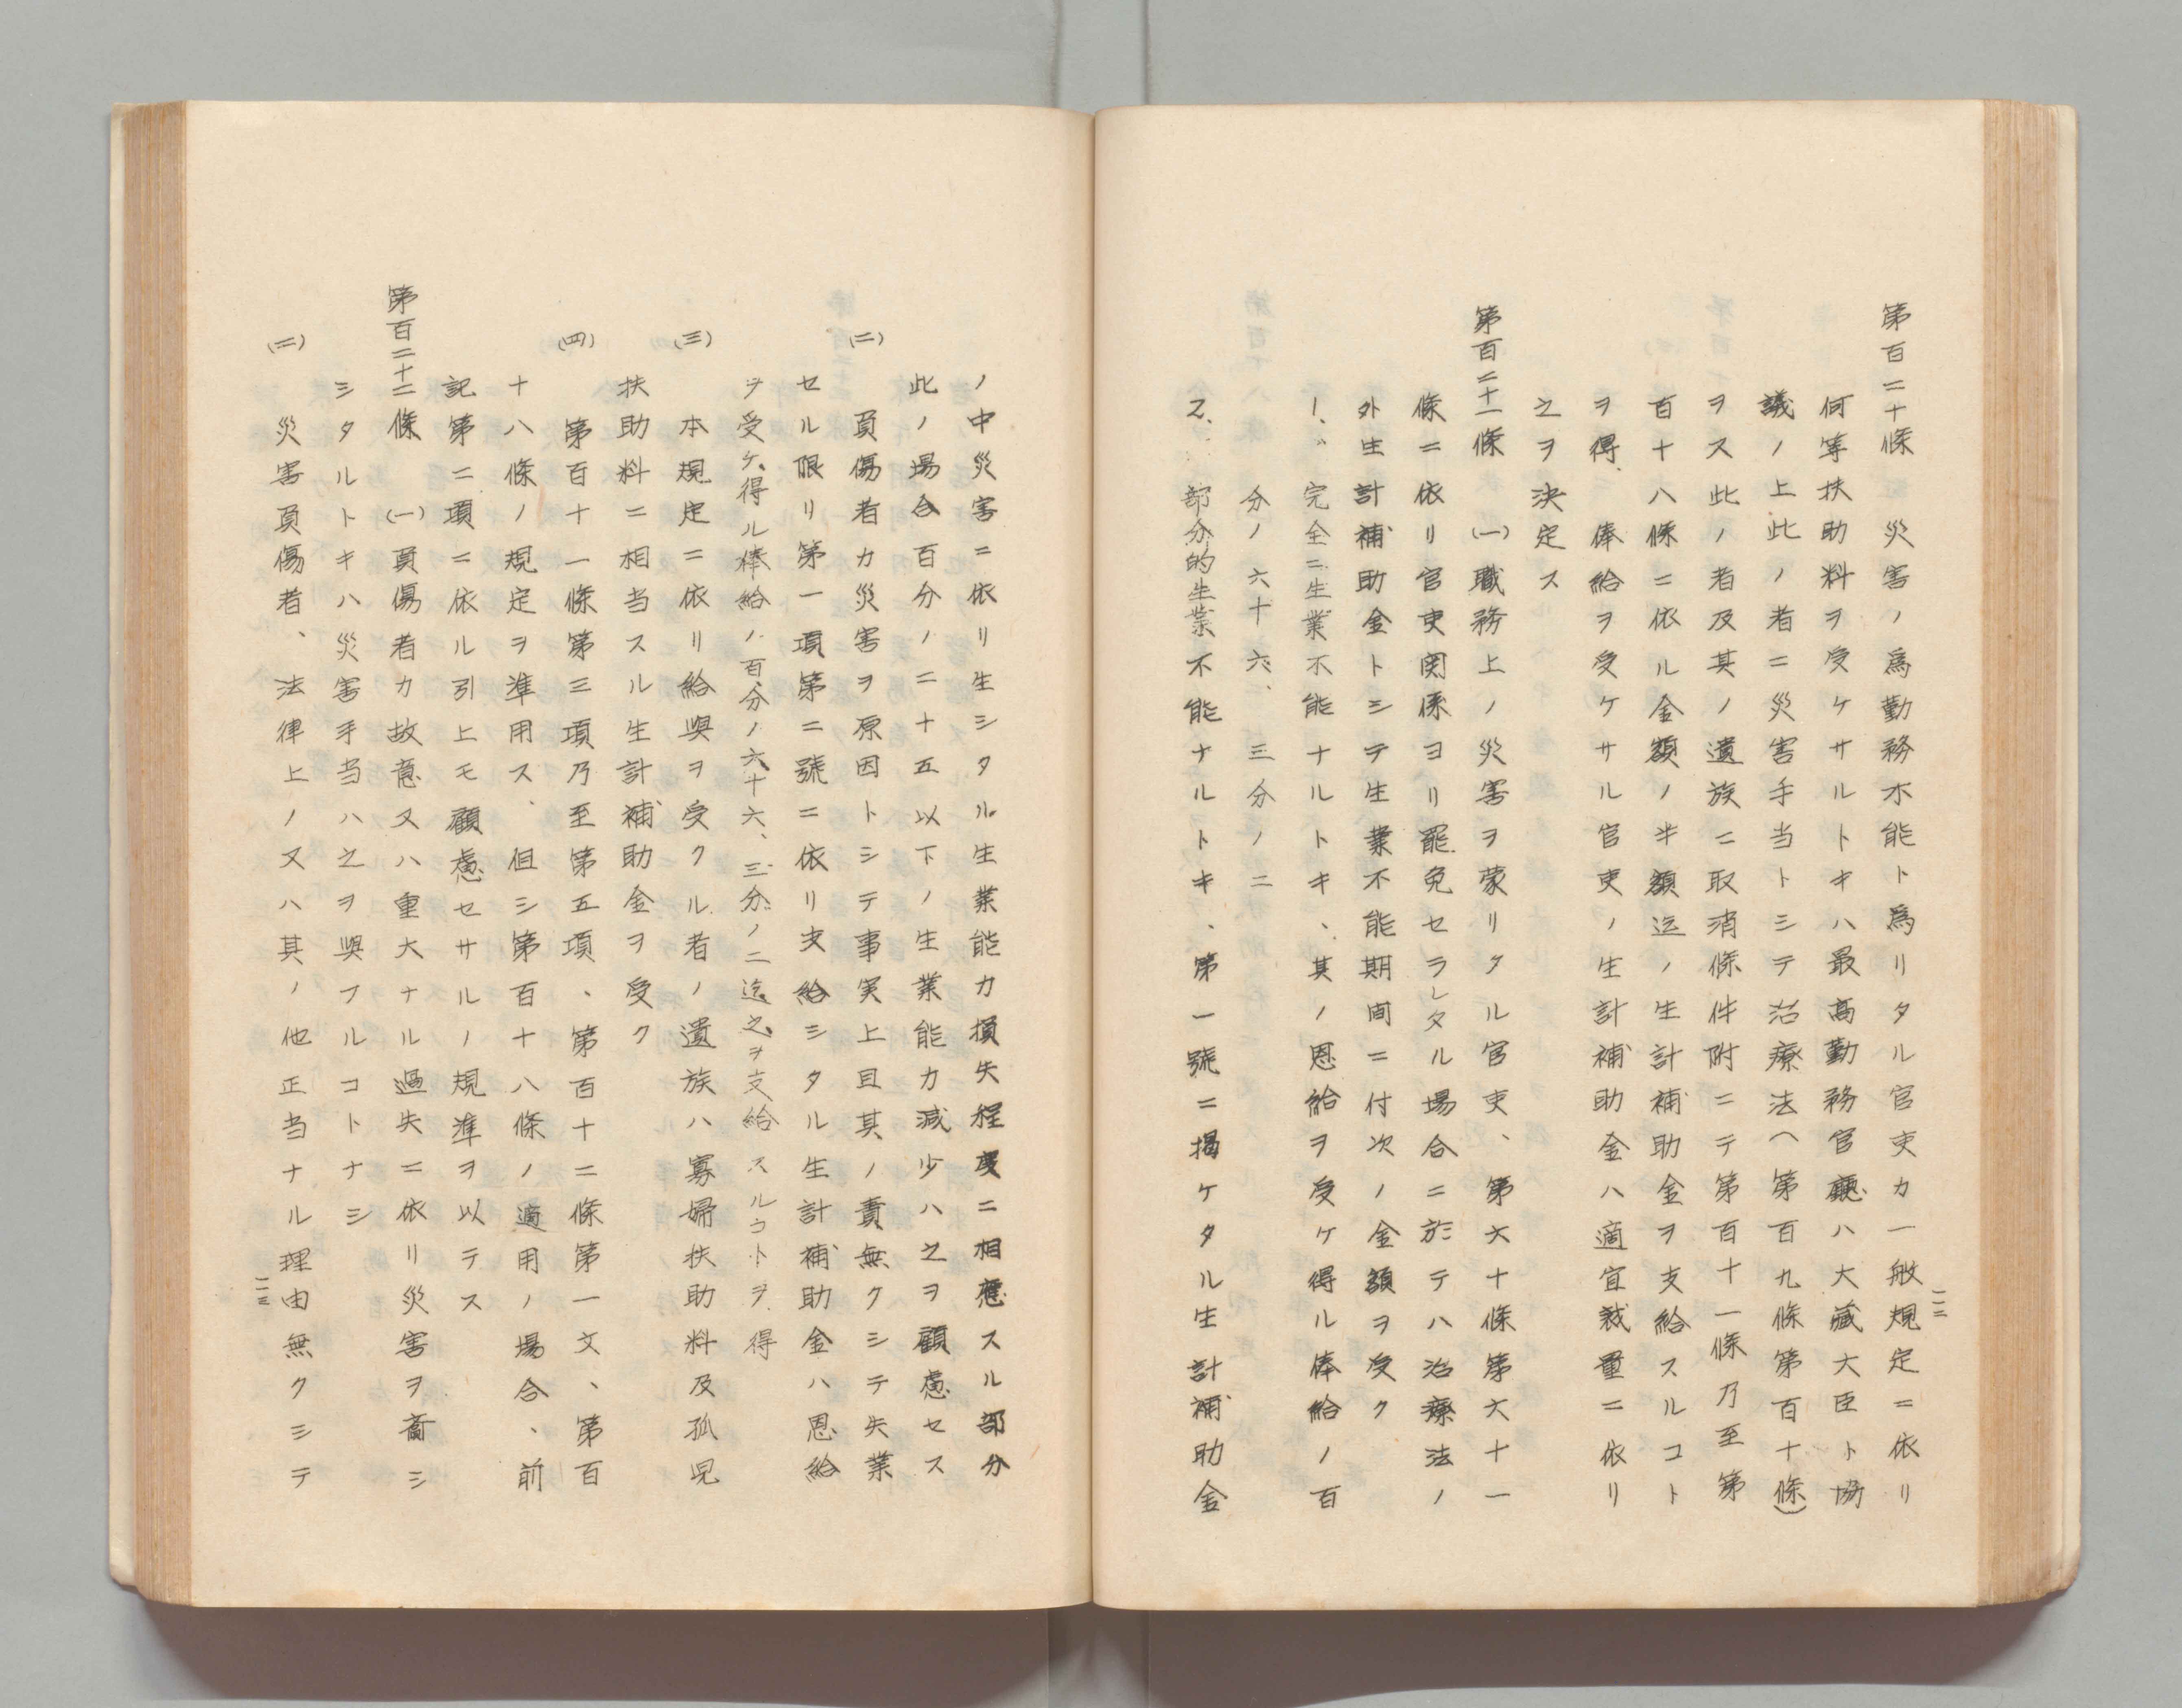 第百二十條　災害ノ爲勤務不能ト爲リタル官吏カ一般規定ニ依リ
何等扶助料ヲ受ケサルトキハ最高勤務官廳ハ大藏大臣ト協
議ノ上此ノ者ニ災害手当トシテ治療法（第百九條第百十條）
ヲス此ノ者及其ノ遺族ニ取消條件附ニテ第百十一條乃至第
百十八條ニ依ル金額ノ半額迄ノ生計補助金ヲ支給スルコト
ヲ得、俸給ヲ受ケサル官吏ノ生計補助金ハ適宜裁量ニ依リ
之ヲ決定ス
第百二十一條　(一)職務上ノ災害ヲ蒙リタル官吏、第六十條第六十一
條ニ依リ官吏関係ヨリ罷免セラレタル場合ニ於テハ治療法ノ
外生計補助金トシテ生業不能期間ニ付次ノ金額ヲ受ク
1.　完全ニ生業不能ナルトキ、其ノ恩給ヲ受ケ得ル俸給ノ百
分ノ六十六、三分ノ二
2.　部分的生業不能ナルトキ、第一號ニ掲ケタル生計補助金
一一二
ノ中災害ニ依リ生シタル生業能力損失程度ニ相應スル部分
此ノ場合百分ノ二十五以下ノ生業能力減少ハ之ヲ顧慮セス
(二)　負傷者カ災害ヲ原因トシテ事実上且其ノ責無クシテ失業
セル限リ第一項第二號ニ依リ支給シタル生計補助金ハ恩給
ヲ受ケ得ル俸給ノ百分ノ六十六、三分ノ二迄之ヲ支給スルコトヲ得
(三)　本規定ニ依リ給與ヲ受クル者ノ遺族ハ寡婦扶助料及孤児
扶助料ニ相当スル生計補助金ヲ受ク
(四)　第百十一條第三項乃至第五項、第百十二條第一文、第百
十八條ノ規定ヲ準用ス、但シ第百十八條ノ適用ノ場合、前
記第二項ニ依ル引上モ顧慮セサルノ規準ヲ以テス
第百二十二條　(一)負傷者カ故意又ハ重大ナル過失ニ依リ災害ヲ齎シ
シタルトキハ災害手当ハ之ヲ與フルコトナシ
(二)　災害負傷者、法律上ノ又ハ其ノ他正当ナル理由無クシテ
一一三